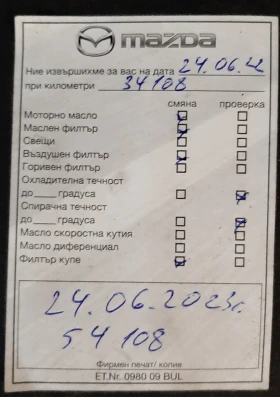 mazda
Ние извършихме за вас на дата 24.06.22
при километри 34108
смяна проверка
Моторно масло
Маслен филтър
Свещи
Въздушен филтър
Горивен филтър
Охладителна течност
до____градуса
Спирачна течност
до____градуса
Масло скоростна кутия
Масло диференциал
Филтър купе
24.06.2023г.
54108
Фирмен печат/ копие
ET.Nr. 0980 09 BUL